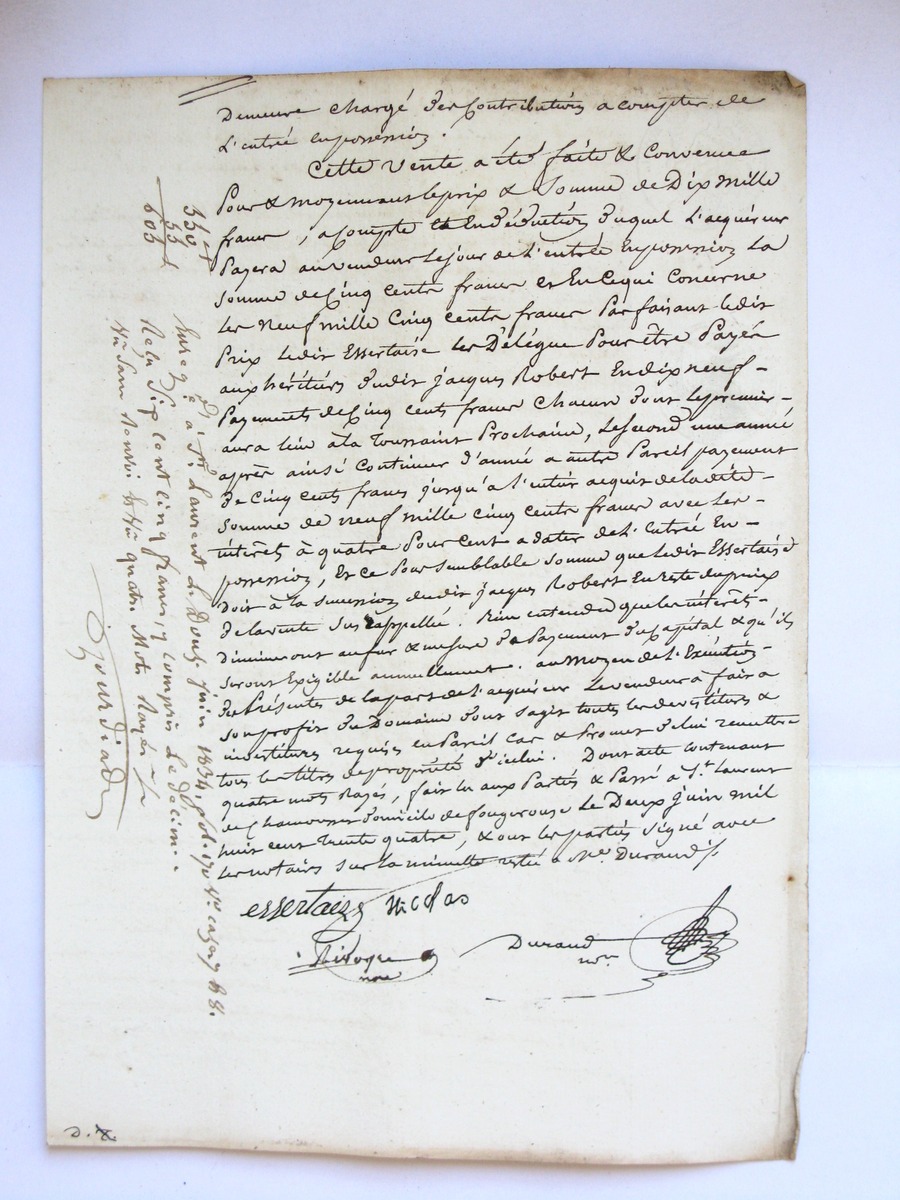 Demeure chargé des Contributions a compter de
L'entrée en possession.
Cette Vente a été faite & Convenue
Pour & moyennant le prix & Somme de Dix mille
francs, a Compte & En Déduction duquel L'acquéreur
Payera au vendeur le jour de L'entrée En possession La
Somme de Cinq cents francs et En Ce qui Concerne
les Neuf mille Cinq cents francs Parfaisant ledit
Prix ledit Essertaise les Délégue Pour être Payés
aux héritiers dudit jacques Robert En dix neuf
Payements de Cinq cents francs Chacun dont le premier
aura lieu à la Toussaint Prochaine, Le second une année
après ainsi Continuer d'année a autre Pareil payement
de Cinq cents francs jusqu'a l'entier acquit de la dite
Somme de neuf mille cinq cents francs avec les
intérêts à quatre Pour cent a dater de L'entrée En
possession, Et ce Pour semblable Somme que ledit Essertaise
Doit à la succession dudit jacques Robert En reste du prix
de la vente sus rappellé. Bien entendu que les intérêts
diminueront au fur & mesure du Payement du Capital & qu'ils
seront Exigible annuellement. au Moyen de L'Exécution
des Présentes de la part de L'acquéreur Le vendeur à fait a
son profit du Domaine dont s'agit toutes les devestitures &
investitures requises en Pareil Cas & Promet de lui remettre
tous les titres de propriété d'icelui. Dont acte contenant
quatre mots Rayés, fait lu aux Parties & Passé à St. Laurent
de Chamousset Domicile de fougerouse Le Deux juin mil
huit cent trente quatre, & ont les parties Signé avec
les notaires sur la minutte restée a Me. Durand
essertaize nicolas
Durand
nore
nore
550
55
605
Enreg.é à St. Laurent Le Douze juin 1834, fol. 170 Vo. cases
Reçu Six cent cinq francs, y compris Le décime.
quatre Mots Rayés
D.